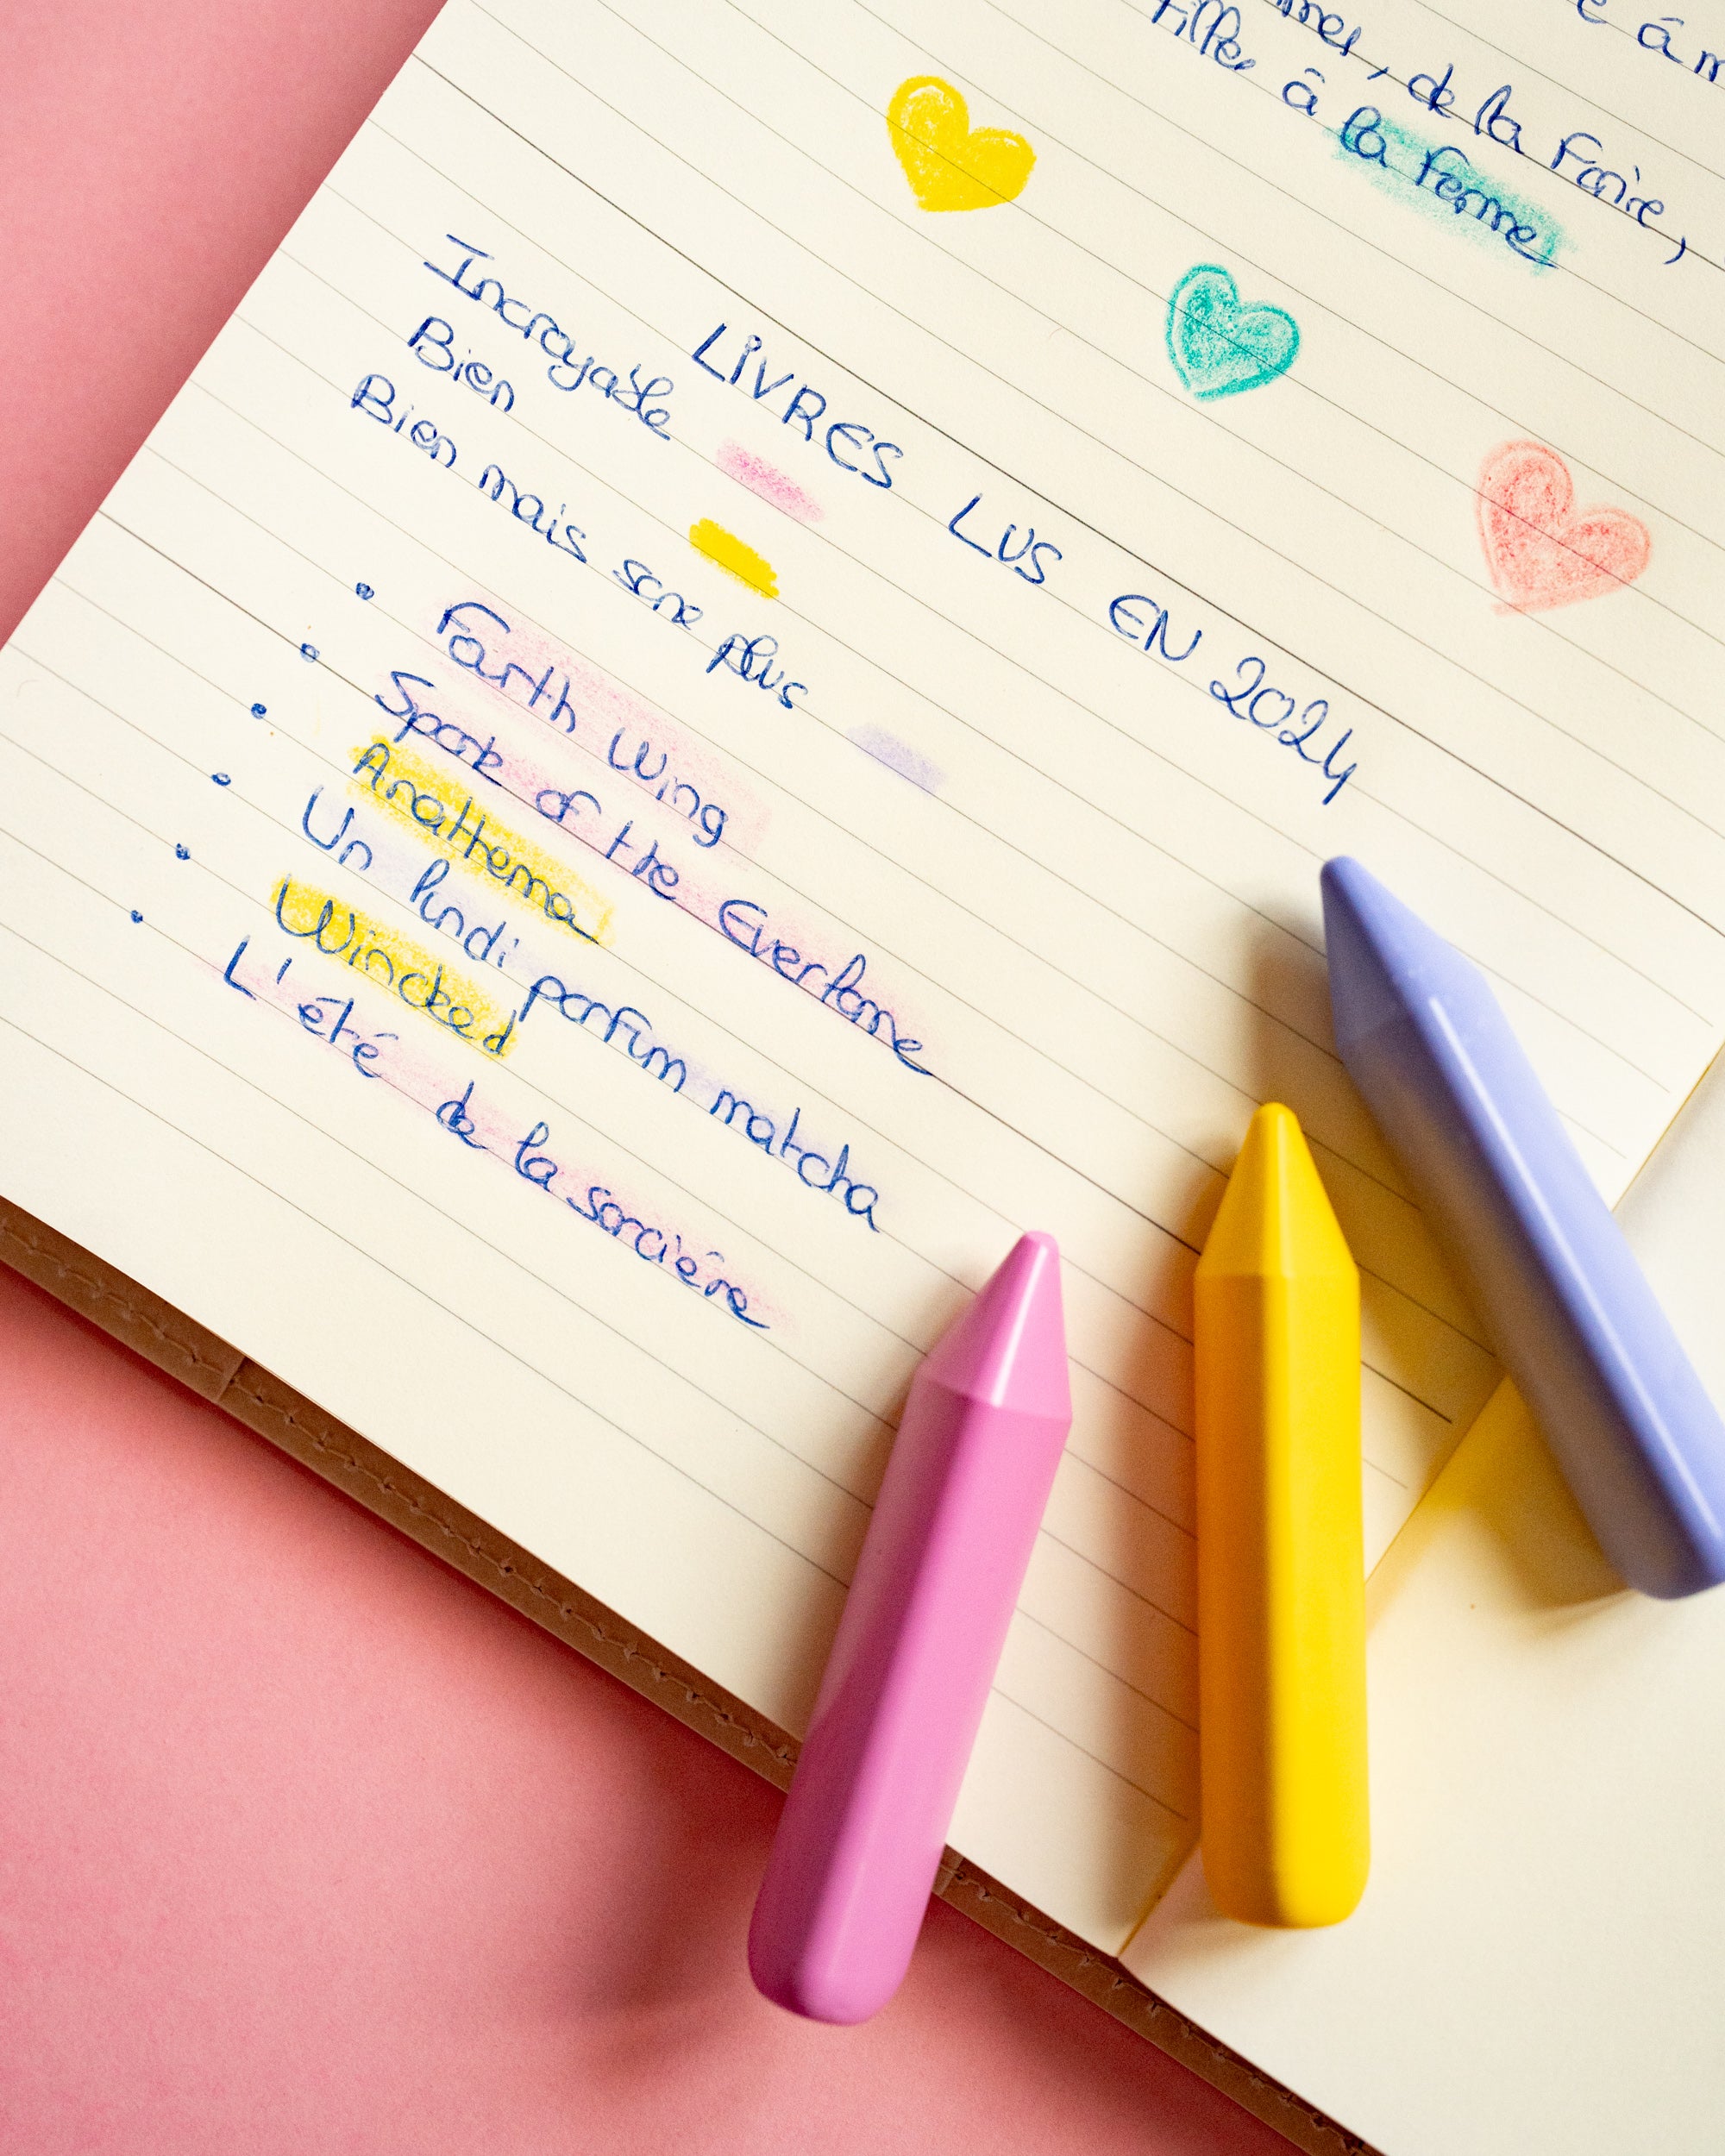 de la Foire,
à la ferme
LiVRES LUS EN 2024
Incroyable
Bien
Bien mais sans plus
• Fourth Wing
• Spark of the Everflame
• Anathema
• Un lundi parfum matcha
• Wincked
• L'été de la sorciére